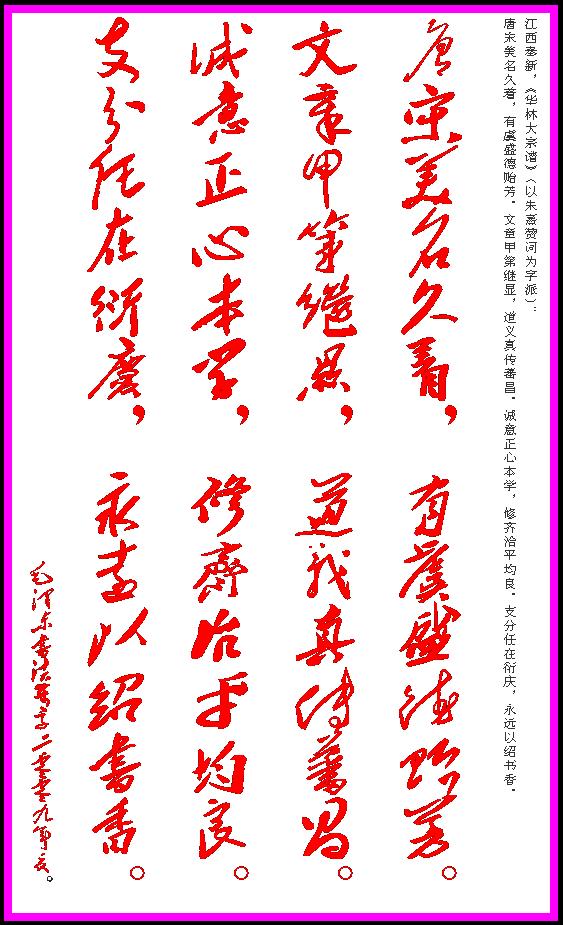 江西奉新，《华林大宗谱》（以朱熹赞词为字派）：
唐宋美名久着，有虞盛德贻芳．文章甲第继显，道义真传蕃昌．诚意正心本学，修齐治平均良．支分任在衍庆，永远以绍书香．
唐宋美名久着，有虞盛德贻芳。
文章甲第繼显，道義真傳蕃昌。
诚意正心本学，修齊治平均良。
支分任在衍慶，永远以紹書香。
毛泽东書法集字二零零九年夏。